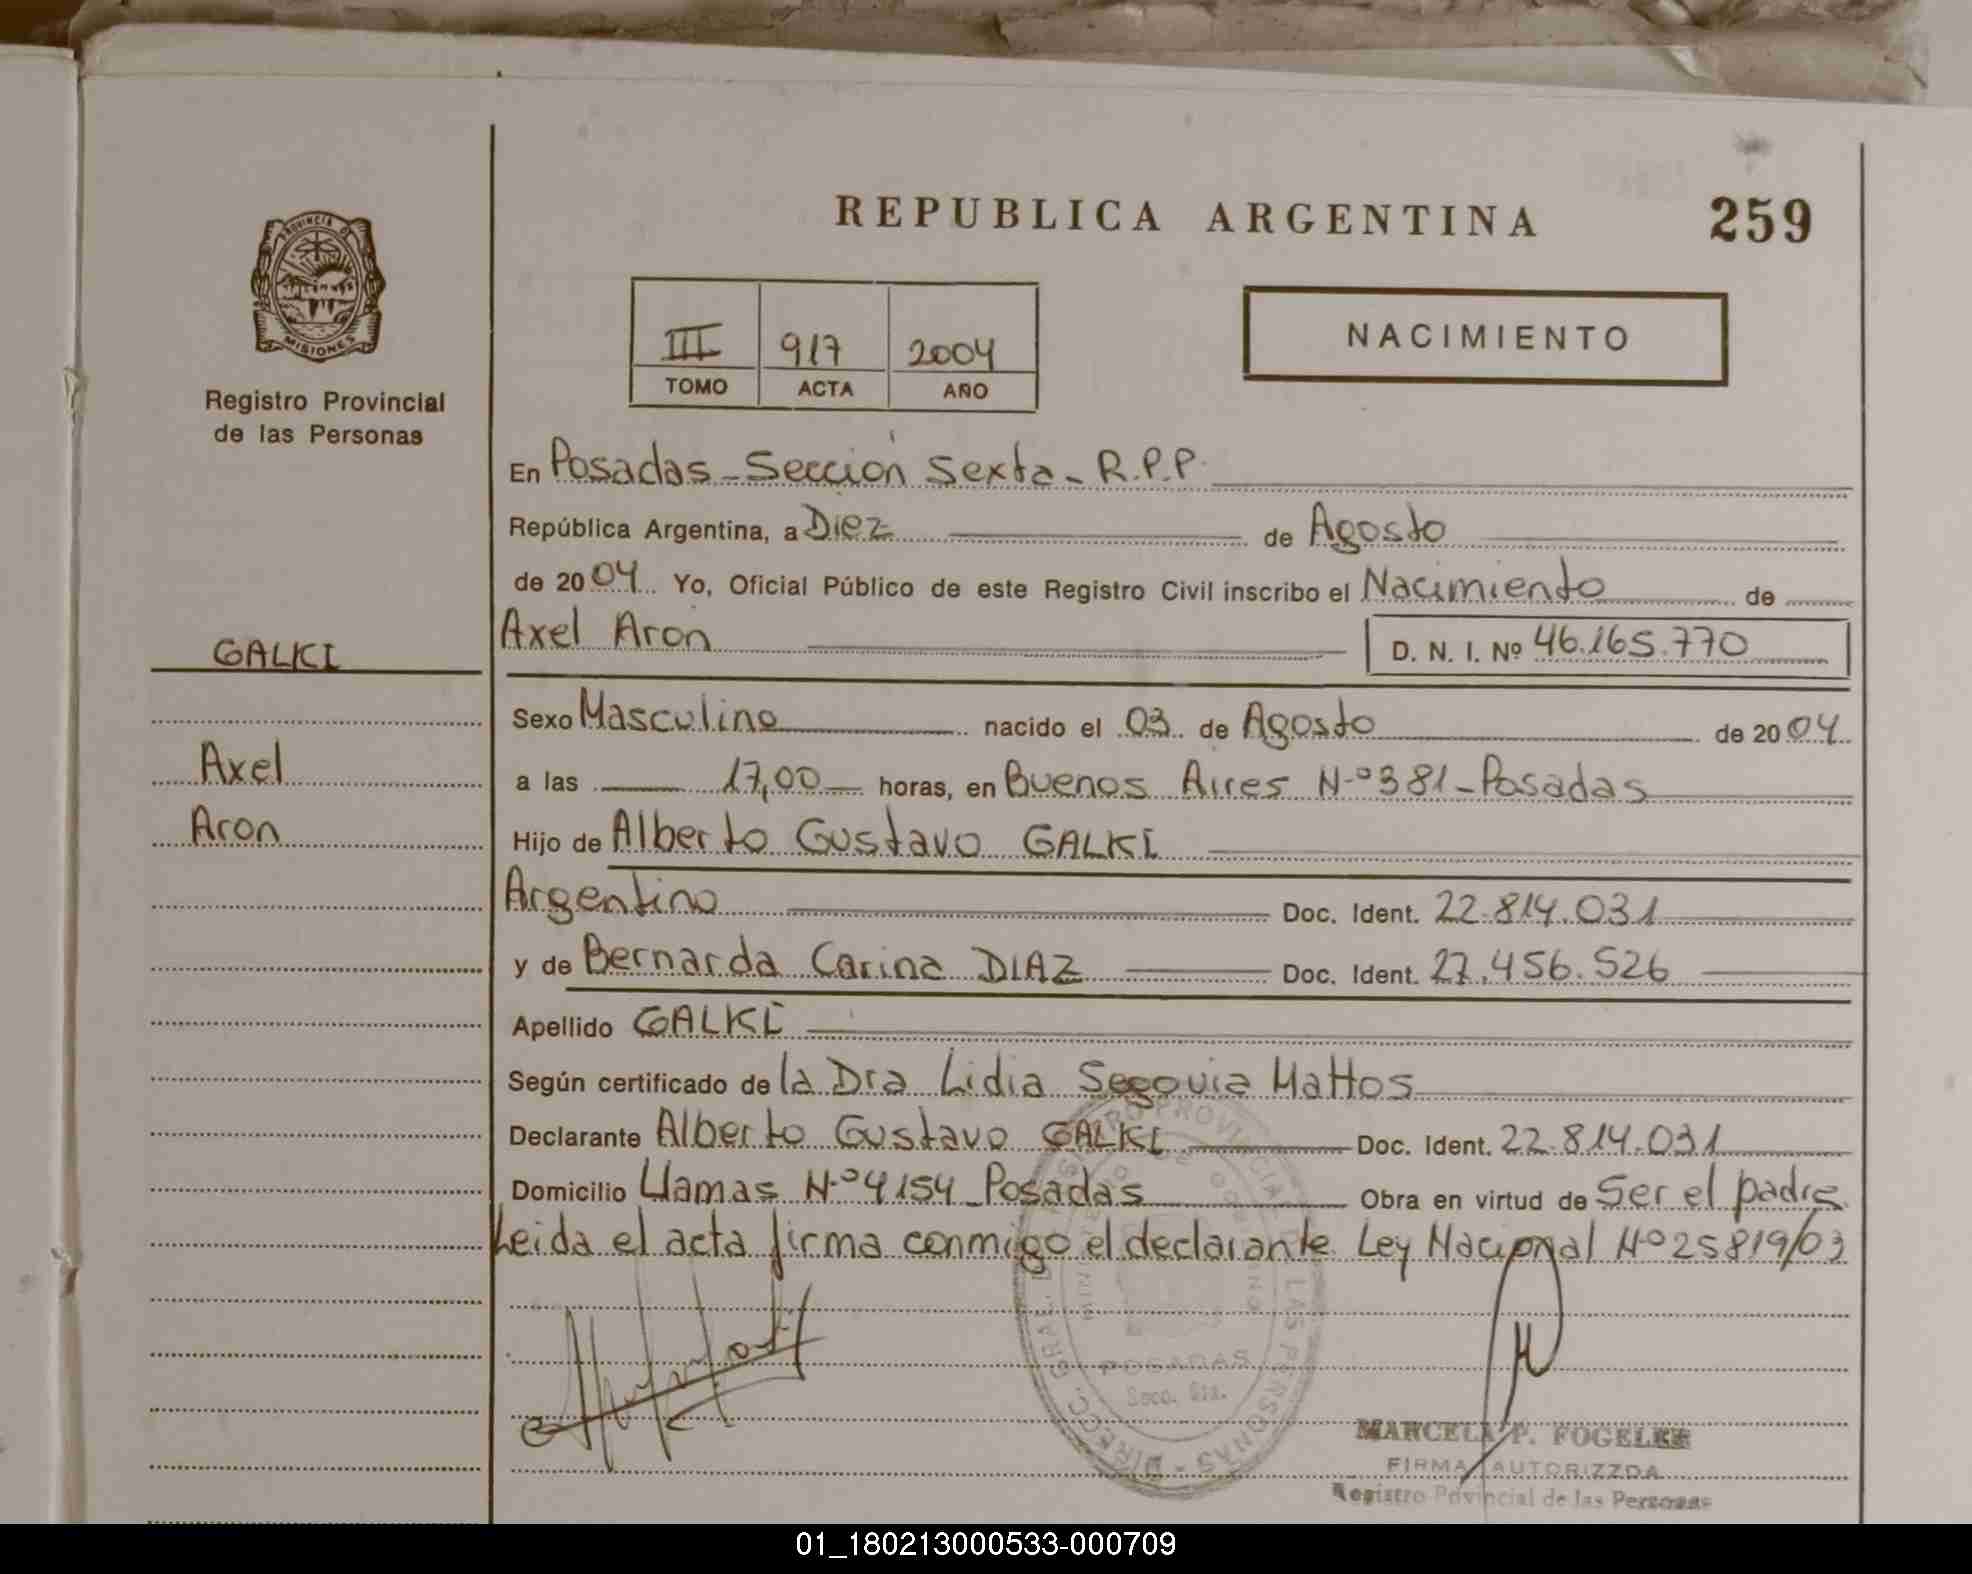 REPUBLICA ARGENTINA 259
PROVINCIA DE
MISIONES
Registro Provincial
de las Personas
III 917 2004
TOMO ACTA AÑO
NACIMIENTO
En Posadas - Sección Sexta - R.P.P.
República Argentina, a Diez de Agosto
de 2004 Yo, Oficial Público de este Registro Civil inscribo el Nacimiento de
GALKI
Axel Aron D. N. I. Nº 46.165.770
Sexo Masculino nacido el 03 de Agosto de 2004
Axel
a las 17,00 horas, en Buenos Aires N-º 381 - Posadas
Aron
Hijo de Alberto Gustavo GALKI
Argentino Doc. Ident. 22.814.031
y de Bernarda Carina DIAZ Doc. Ident. 27.456.526
Apellido GALKI
Según certificado de la Dra Lidia Segovia Mattos
Declarante Alberto Gustavo GALKI Doc. Ident. 22.814.031
Domicilio Llamas N-º 4154 - Posadas Obra en virtud de Ser el padre
Leida el acta firma conmigo el declarante Ley Nacional Nº 25819/03
POSADAS
Secc. 6ta.
MARCELA P. FOGELER
FIRMA AUTORIZZDA
Registro Povincial de las Personas
01_180213000533-000709